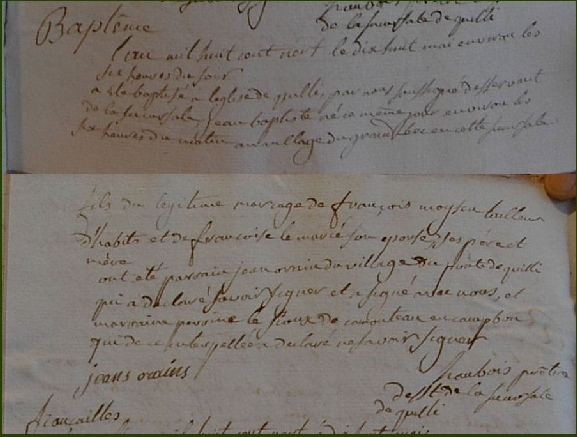 de la succursale de quilli
Baptême
L'an mil huit cent sept le dix huit mai environ les
six heures du soir
a été baptisé a leglise de quilli par nous soussigné desservant
de la succursale jean baptiste né ce même jour environ les
six heures du matin au village du grand bec en cette succursale
fils du legitime mariage de françois moysan tailleur
d'habits et de françoise le marié son epouse, ses père et
mère
ont été parrain jean orain du village du de quilli
qui a declaré savoir signer et a signé avec nous, et
marraine perrine le sioux de en campbon
qui de ce interpellée a declaré ne savoir signer
jean orains
prêtre
desst de la succursale
de quilli
fiançailles